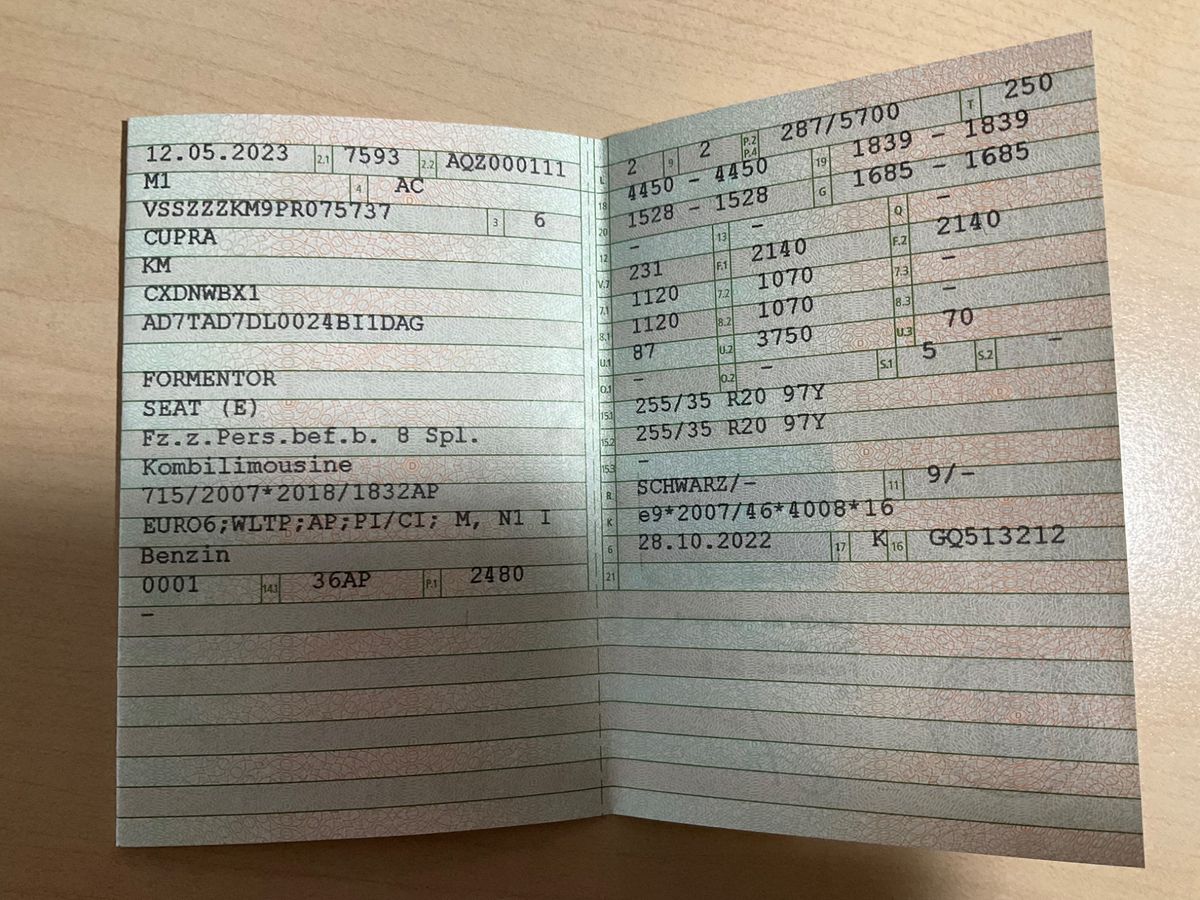 12.05.2023 2.1 7593 2.2 AQZ000111
M1 4 AC
VSSZZZKM9PR075737 3 6
CUPRA
KM
CXDNWBX1
AD7TAD7DL0024BI1DAG
FORMENTOR
SEAT (E)
Fz.z.Pers.bef.b. 8 Spl.
Kombilimousine
715/2007*2018/1832AP
EURO6;WLTP;AP;PI/CI; M, N1 I
Benzin
0001 14.1 36AP P.1 2480
–
L 2 9 2 P.2 P.4 287/5700 T 250
18 4450 – 4450 19 1839 – 1839
20 1528 – 1528 G 1685 – 1685
12 – 13 – Q –
V.7 231 F.1 2140 F.2 2140
7.1 1120 7.2 1070 7.3 –
8.1 1120 8.2 1070 8.3 –
U.1 87 U.2 3750 U.3 70
O.1 – O.2 – S.1 5 S.2 –
15.1 255/35 R20 97Y
15.2 255/35 R20 97Y
15.3 –
R SCHWARZ/– 11 9/–
K e9*2007/46*4008*16
6 28.10.2022 17 K 16 GQ513212
21